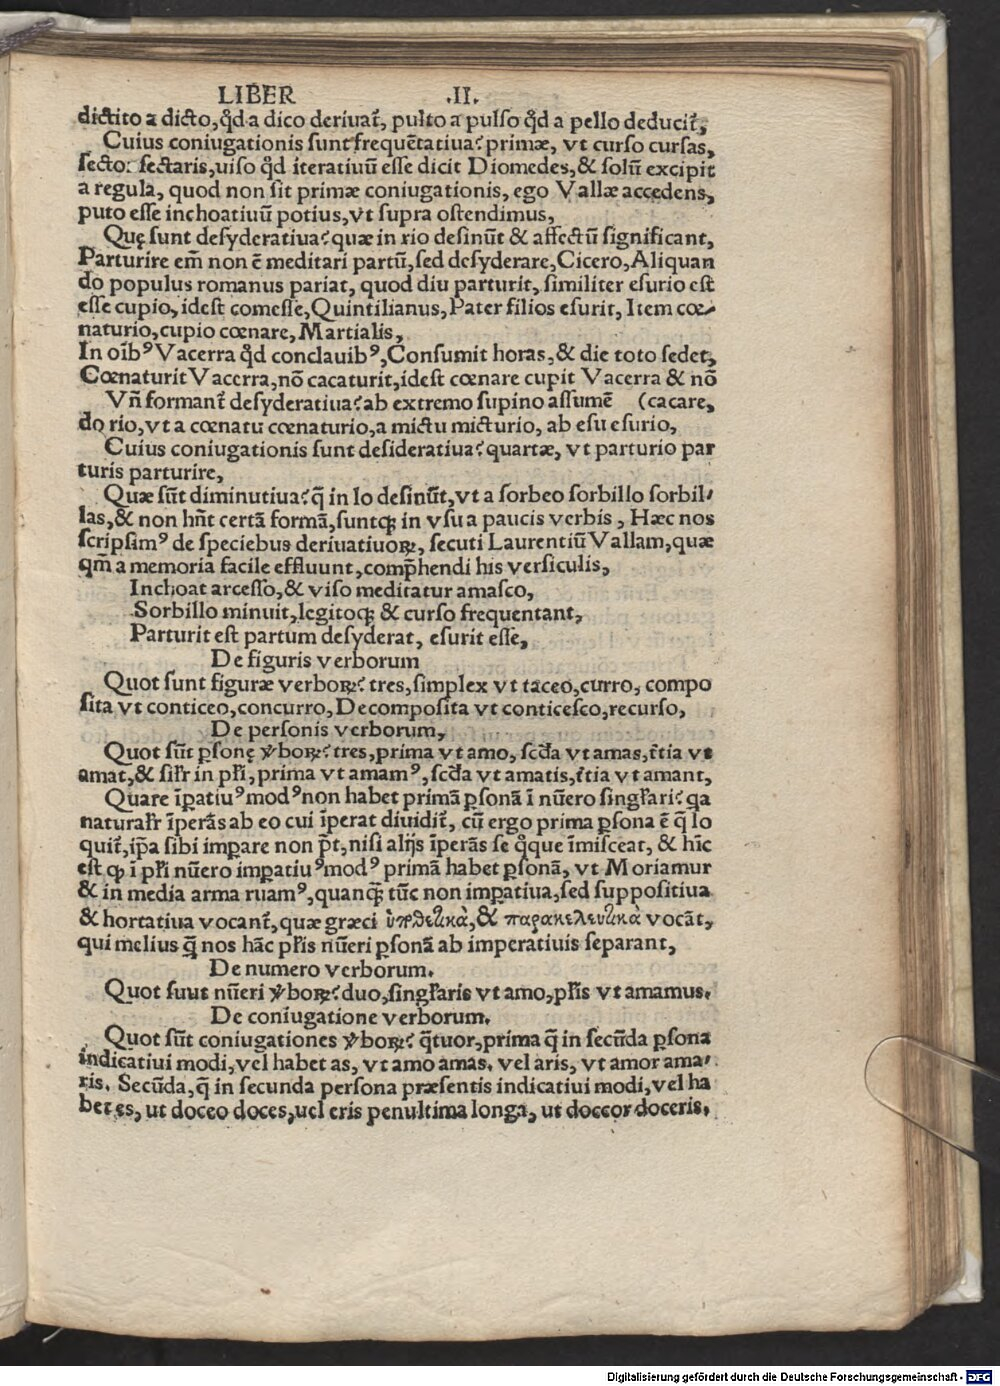 LIBER .II.
dictito a dicto, qd̄ a dico deriuat᷑, pulto a pulso qd̄ a pello deducit᷑,
Cuius coniugationis sunt frequētatiua? primæ, vt curso cursas,
secto: sectaris, uiso qd̄ iteratiuū esse dicit Diomedes, & solū excipit
a regula, quod non sit primæ coniugationis, ego Vallæ accedens,
puto esse inchoatiuū potius, vt supra ostendimus,
Quę sunt desyderatiua? quæ in rio desinūt & affectū significant,
Parturire em̄ non ē meditari partū, sed desyderare, Cicero, Aliquan
do populus romanus pariat, quod diu parturit, similiter esurio est
esse cupio, idest comesse, Quintilianus, Pater filios esurit, Item cœ-
naturio, cupio cœnare, Martialis,
In oībꝰ Vacerra qd̄ conclauibꝰ, Consumit horas, & die toto sedet,
Cœnaturit Vacerra, nō cacaturit, idest cœnare cupit Vacerra & nō
Vn̄ formant᷑ desyderatiua? ab extremo supino assumē (cacare,
do rio, vt a cœnatu cœnaturio, a mictu micturio, ab esu esurio,
Cuius coniugationis sunt desideratiua? quartæ, vt parturio par
turis parturire,
Quæ sūt diminutiua? q̄ in lo desinūt, vt a sorbeo sorbillo sorbil-
las, & non hn̄t certā formā, suntqꝫ in vsu a paucis verbis, Hæc nos
scripsimꝰ de speciebus deriuatiuoꝝ, secuti Laurentiū Vallam, quæ
qm̄ a memoria facile effluunt, comp̄hendi his versiculis,
Inchoat arcesso, & viso meditatur amasco,
Sorbillo minuit, legitoqꝫ & curso frequentant,
Parturit est partum desyderat, esurit esse,
De figuris verborum
Quot sunt figuræ verboꝝ? tres, simplex vt taceo, curro, compo
sita vt conticeo, concurro, Decomposita vt conticesco, recurso,
De personis verborum,
Quot sūt ꝑsonę v̓boꝝ? tres, prima vt amo, scd̄a vt amas, t̄tia vt
amat, & sil̄r in pl̄i, prima vt amamꝰ, scd̄a vt amatis, t̄tia vt amant,
Quare īꝑatiuꝰ modꝰ non habet primā ꝑsonā ī nūero singl̄ari? qa
natural̄r īꝑās ab eo cui īꝑat diuidit᷑, cū ergo prima ꝑsona ē q̄ lo
quit᷑, ip̄a sibi imꝑare non p̄t, nisi alijs īꝑās se qͦque īmisceat, & hīc
est qꝫ ī pl̄i nūero imꝑatiuꝰ modꝰ primā habet ꝑsonā, vt Moriamur
& in media arma ruamꝰ, quanqꝫ̄ tūc non imꝑatiua, sed suppositiua
& hortatiua vocant᷑, quæ græci ὑποθετικὰ, & παρακελευστικὰ vocāt,
qui melius q̄ꝫ nos hāc pl̄is nūeri ꝑsonā ab imperatiuis separant,
De numero verborum.
Quot suut nūeri v̓boꝝ? duo, singl̄aris vt amo, pl̄is vt amamus.
De coniugatione verborum.
Quot sūt coniugationes v̓boꝝ? q̄tuor, prima q̄ in secūda ꝑsona
indicatiui modi, vel habet as, vt amo amas. vel aris, vt amor ama-
ris. Secūda, q̄ in secunda persona præsentis indicatiui modi, vel ha
bet es, ut doceo doces, uel eris penultima longa, ut doceor doceris.
Digitalisierung gefördert durch die Deutsche Forschungsgemeinschaft - DFG